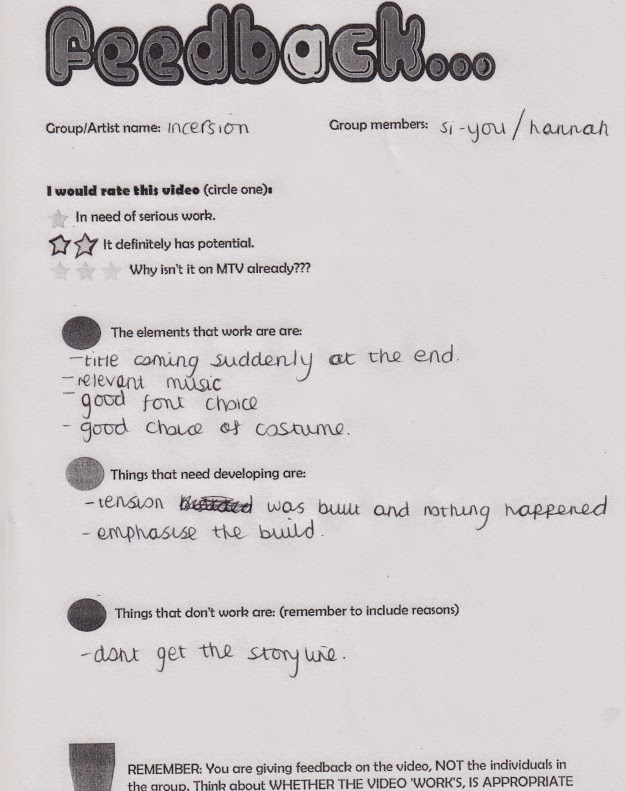 feedback...
Group/Artist name: incersion Group members: si-you/hannah
I would rate this video (circle one):
In need of serious work.
It definitely has potential.
Why isn't it on MTV already???
The elements that work are are:
-title coming suddenly at the end.
-relevant music
- good font choice
- good choice of costume.
Things that need developing are:
-tension was built and nothing happened
- emphasise the build.
Things that don't work are: (remember to include reasons)
-dont get the storyline.
REMEMBER: You are giving feedback on the video, NOT the individuals in
the group. Think about WHETHER THE VIDEO 'WORK'S, IS APPROPRIATE